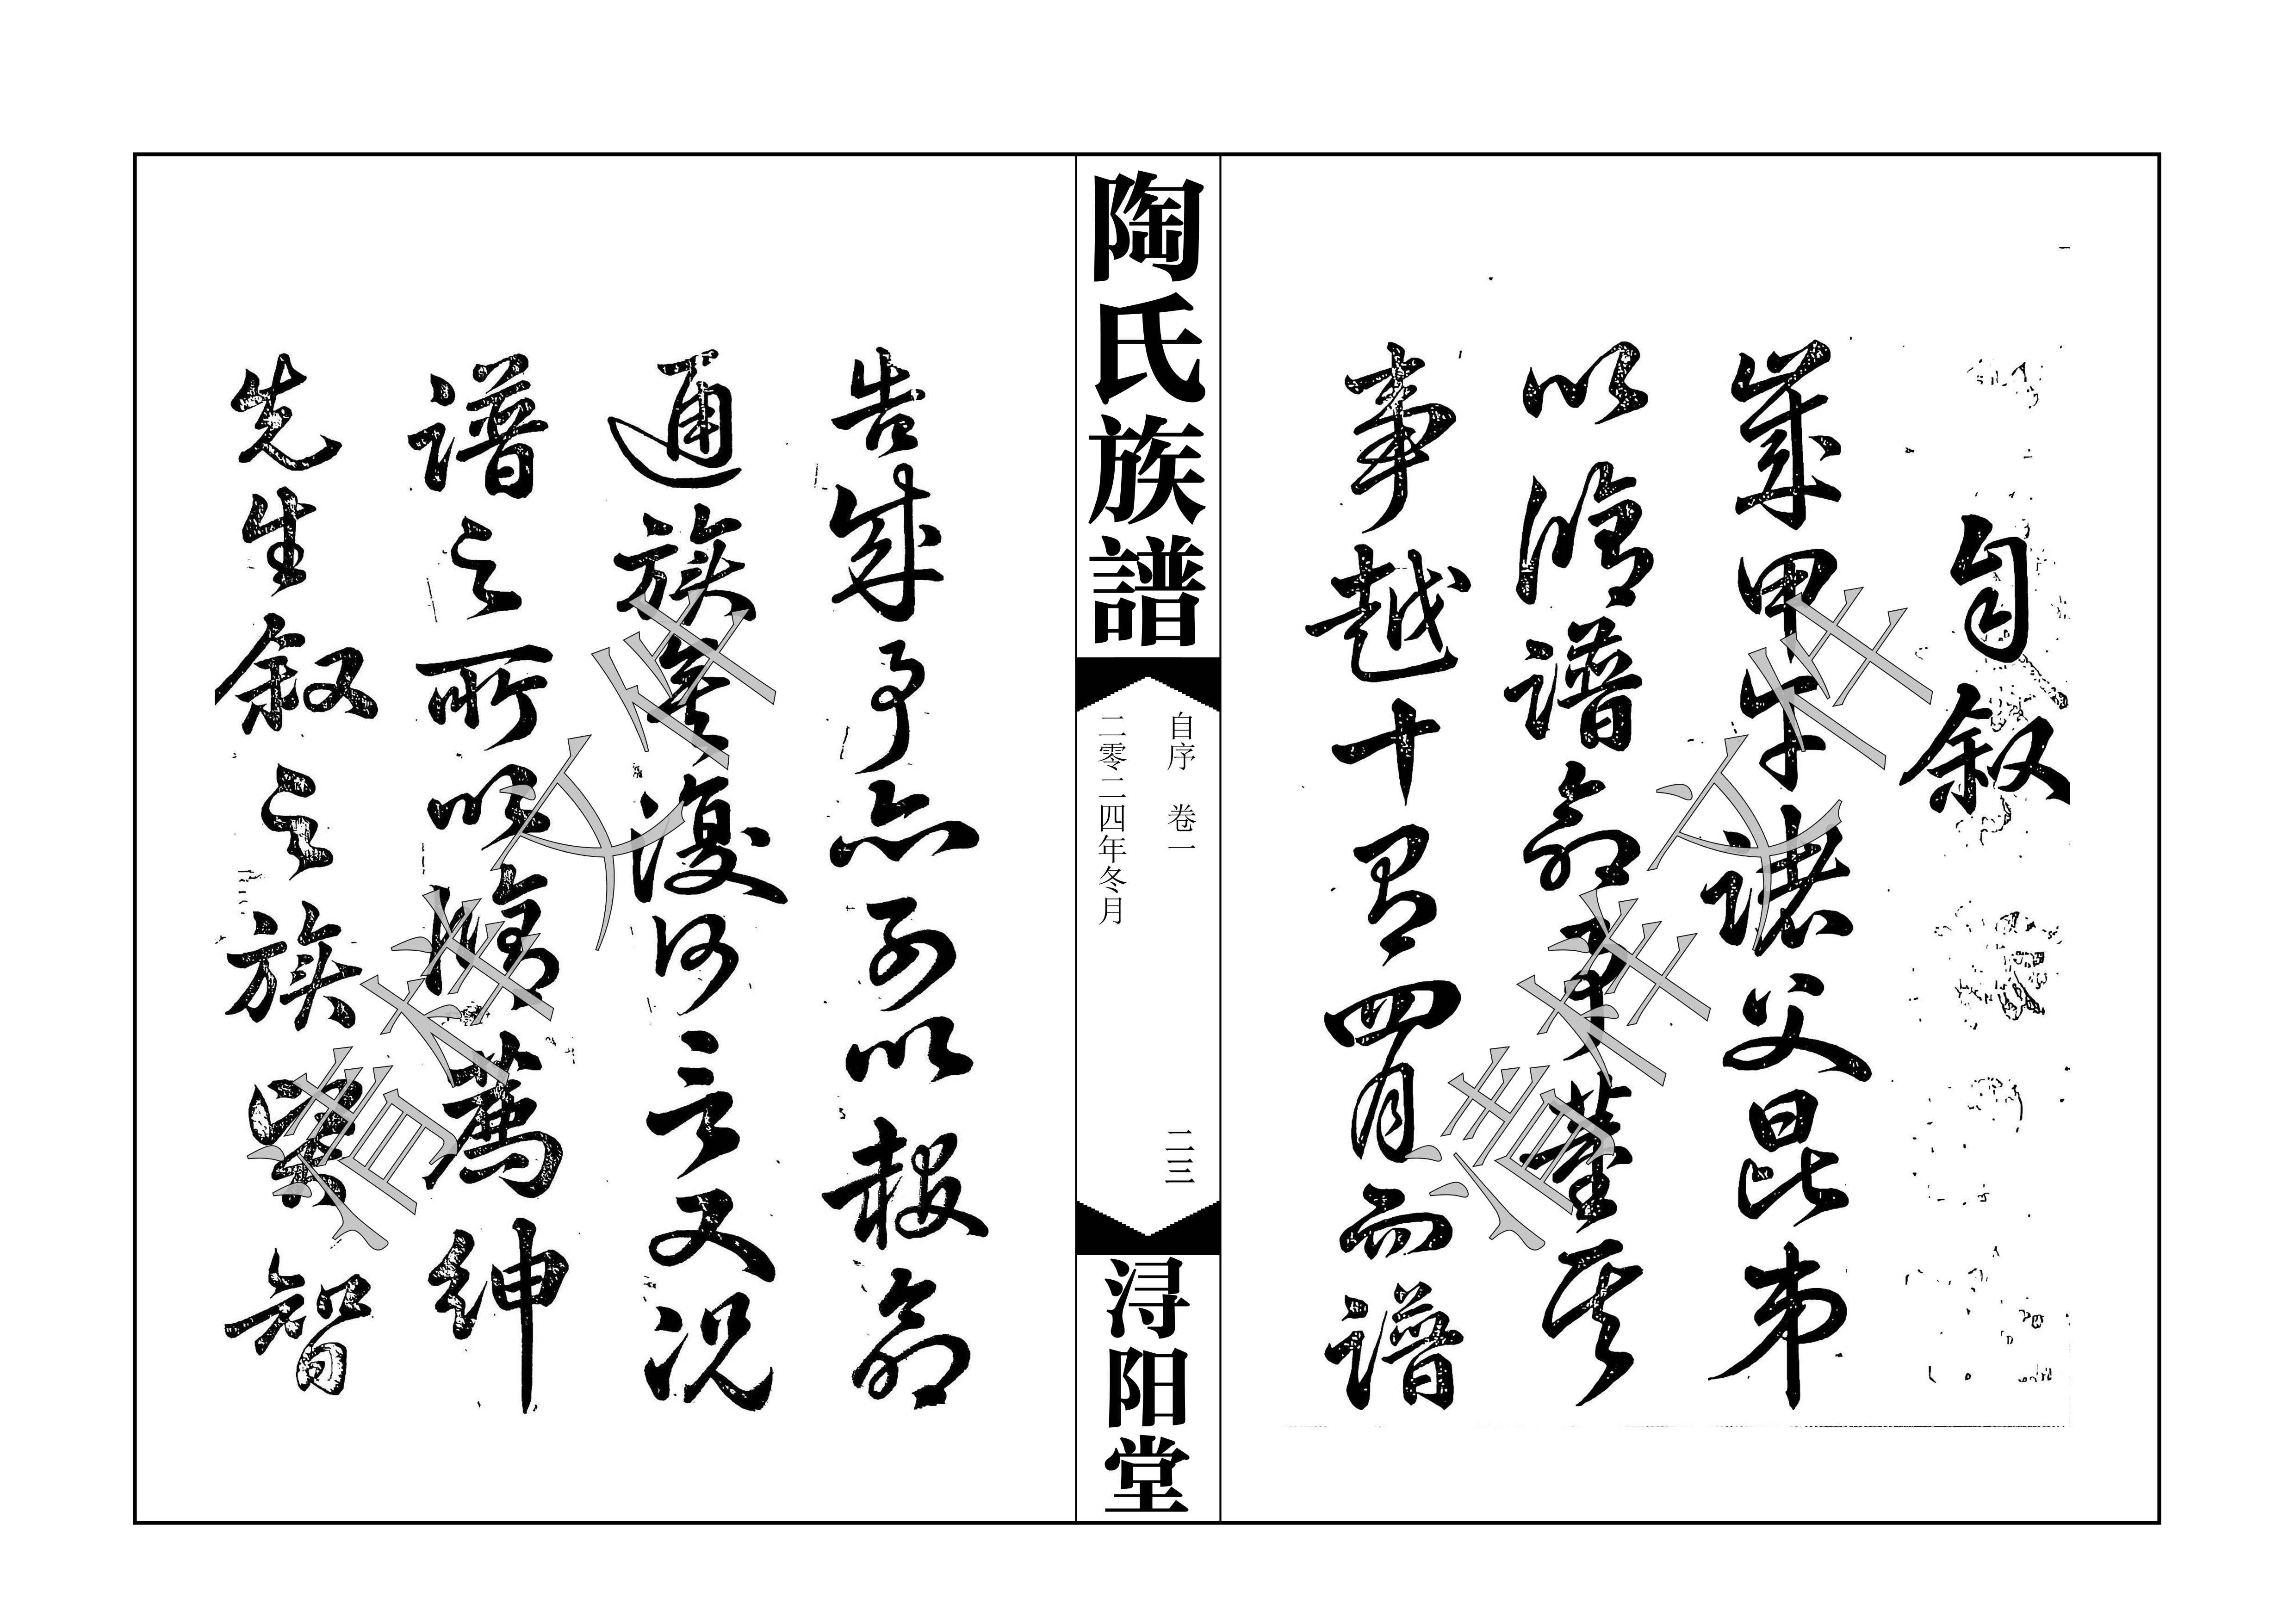 自叙
歲甲午諸父昆弟
以脩譜命予董其
事越十有四月而譜
陶氏族譜
自序 卷一
二零二四年冬月
二三
浔阳堂
告成予亦可以報命
通族矣復何言又況
譜之所以脩薦紳
先生叙之族賢智